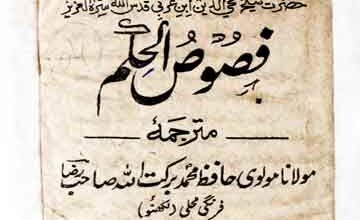 حضرت شیخ محی الدین ابن عربی قدس اللہ سرہ العزیز
فصوص الحکم
مترجمۂ
مولانا مولوی حافظ محمد برکت اللہ صاحب رضا
فرنگی محلی (لکھنؤ)